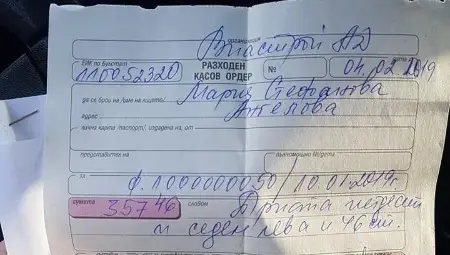 организация
Виастрой АД
ЕИК по Булстат
110052320
РАЗХОДЕН
КАСОВ ОРДЕР
№
04.02.2019
да се брои на /име на което/:
Мария Стефанова
адрес
Ангелова
лична карта /паспорт/, издадена на, от
представител на
пълномощно №/дата
за
ф. 1000000050/10.01.2019г.
сумата
357 46
словом
Триста петдесет
и седем лева и 46 ст.